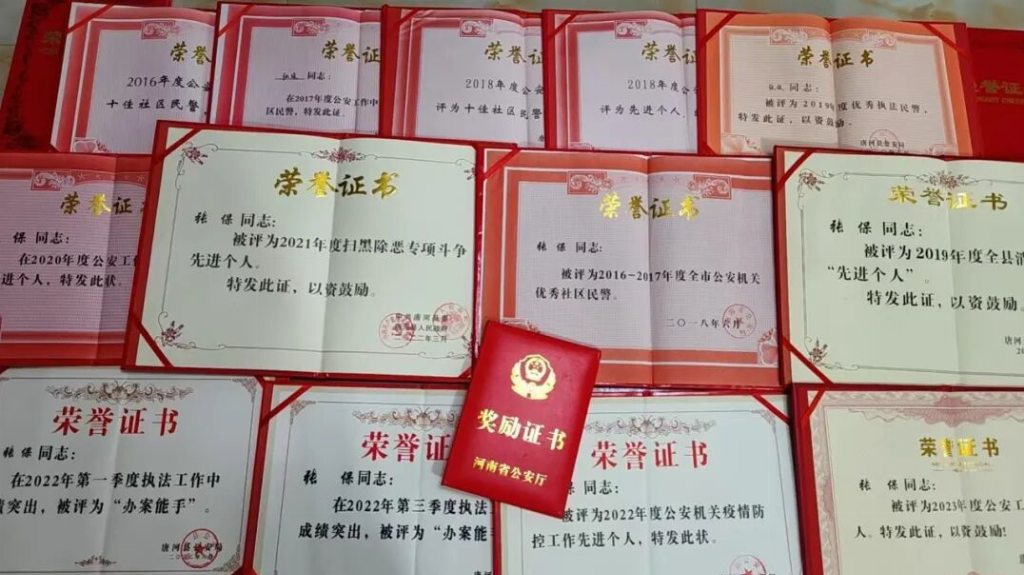 荣誉证
2016年度公安
十佳社区民警
荣誉证
同志：
在2017年度公安工作中
区民警，特发此证。
荣誉证
2018年度公安
评为十佳社区民警
荣誉证
2018年度公安
评为先进个人，
荣誉证书
同志：
被评为2019年度优秀执法民警，
特发此证，以资鼓励。
唐河县公安局
荣誉证
荣誉证书
保 同志：
在2020年度公安工作
先进个人，特发此状。
荣誉证书
张 保 同志：
被评为2021年度扫黑除恶专项斗争
先进个人。
特发此证，以资鼓励。
二〇二二年三月
荣誉证书
张 保 同志：
被评为2016-2017年度全市公安机关
优秀社区民警。
二〇一八年六月
荣誉证书
张 保 同志：
被评为2019年度全县消
“先进个人”。
特发此证，以资鼓
唐河县
荣誉证书
张 保 同志：
在2022年第一季度执法工作中
成绩突出，被评为“办案能手”。
唐河县公安局
荣誉证
张 保 同志：
在2022年第三季度执法
成绩突出，被评为“办案能
唐河
奖励证书
河南省公安厅
荣誉证书
保 同志：
被评为2022年度公安机关疫情防
控工作先进个人，特发此状。
荣誉证书
张 保 同志：
被评为2023年度公安工
人。特发此证，以资鼓励！